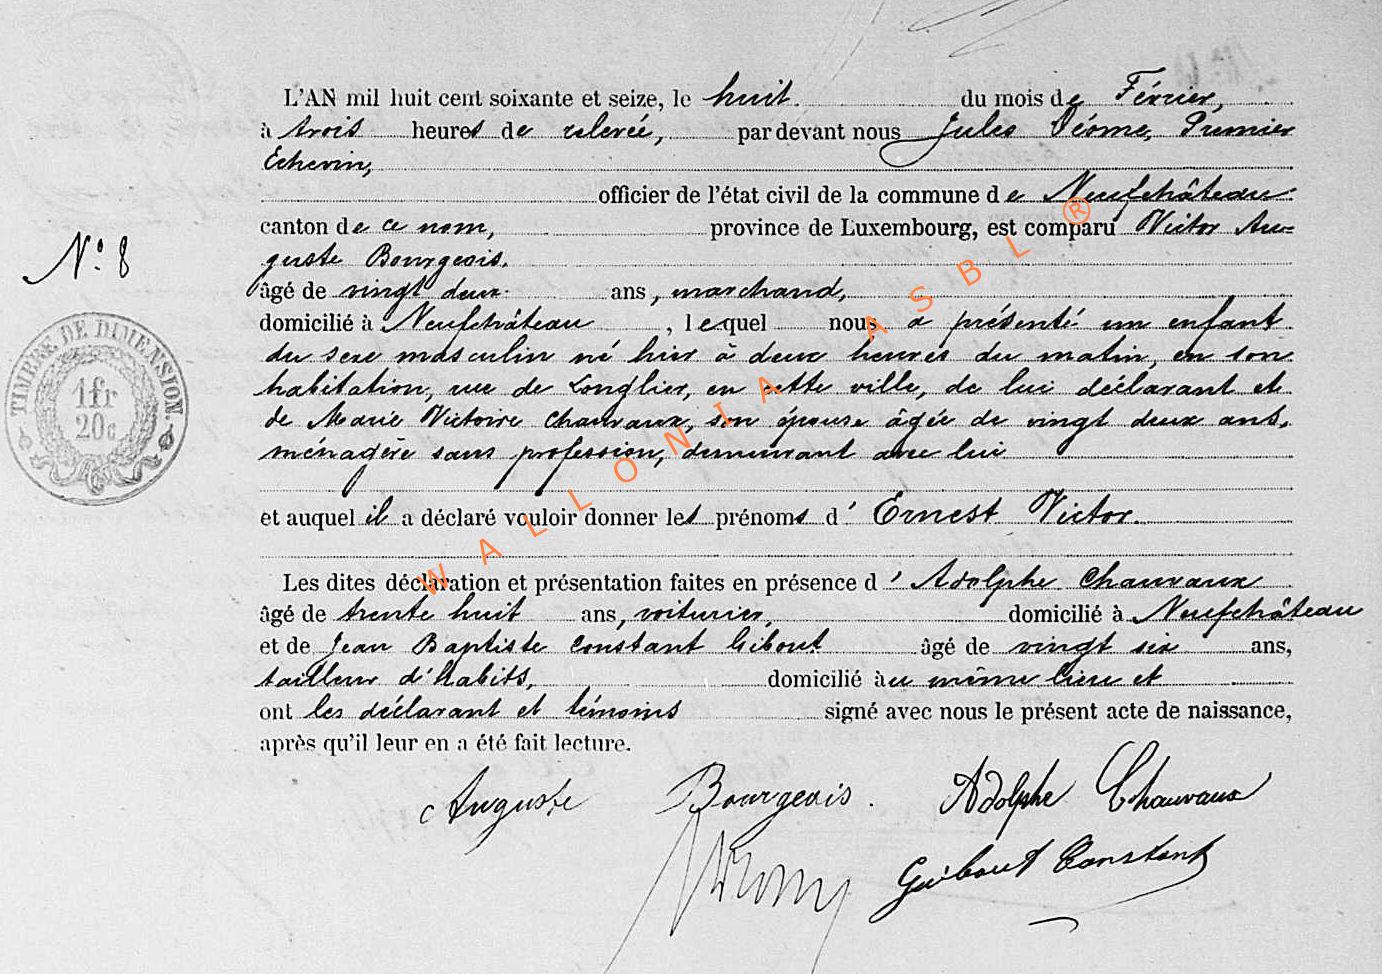 L'AN mil huit cent soixante et seize, le huit du mois de Février,
à trois heures de relevée, par devant nous Jules Dérome, Premier
Echevin,
officier de l'état civil de la commune de Neufchâteau.
canton de ce nom, province de Luxembourg, est comparu Victor Au=
guste Bourgeois,
N° 8
âgé de vingt deux ans, marchand,
domicilié à Neufchâteau, lequel nous a présenté un enfant
du sexe masculin né hier à deux heures du matin, en son
habitation, rue de Longlier, en cette ville, de lui déclarant et
de Marie Victoire Chauvaux, son épouse âgée de vingt deux ans,
ménagère sans profession, demeurant avec lui
et auquel il a déclaré vouloir donner les prénoms d'Ernest Victor.
Les dites déclaration et présentation faites en présence d'Adolphe Chauvaux
âgé de trente huit ans, voiturier, domicilié à Neufchâteau
et de Jean Baptiste Constant Gibout âgé de vingt six ans,
tailleur d'habits, domicilié au même lieu et
ont les déclarant et témoins signé avec nous le présent acte de naissance,
après qu'il leur en a été fait lecture.
Auguste Bourgeois. Adolphe Chauvaux
Guibout Constant
TIMBRE DE DIMENSION.
1 fr
20c
WALLONIA ASBL ®